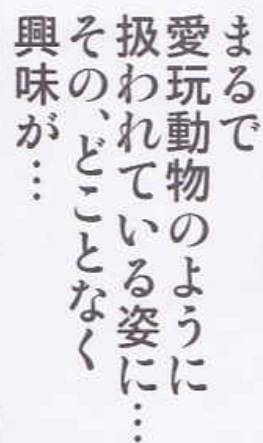 まるで
愛玩動物のように
扱われている姿に…
その、どことなく
興味が…